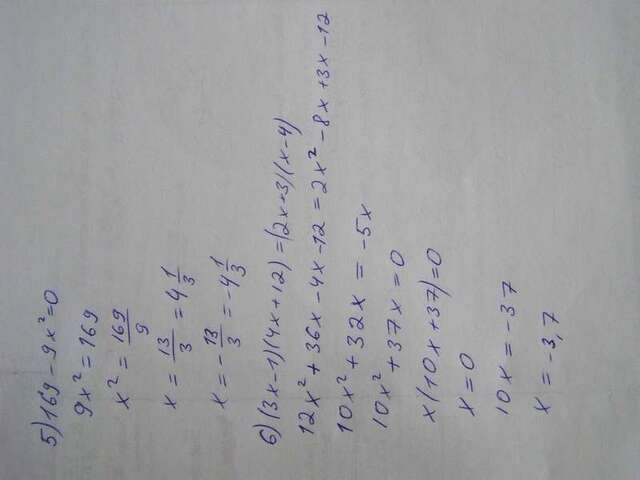 5) 169 - 9x² = 0
9x² = 169
x² = 169/9
x = 13/3 = 4 1/3
x = -13/3 = -4 1/3
6) (3x-1)(4x+12) = (2x+3)(x-4)
12x² + 36x - 4x - 12 = 2x² - 8x + 3x - 12
10x² + 32x = -5x
10x² + 37x = 0
x(10x+37) = 0
x = 0
10x = -37
x = -3,7